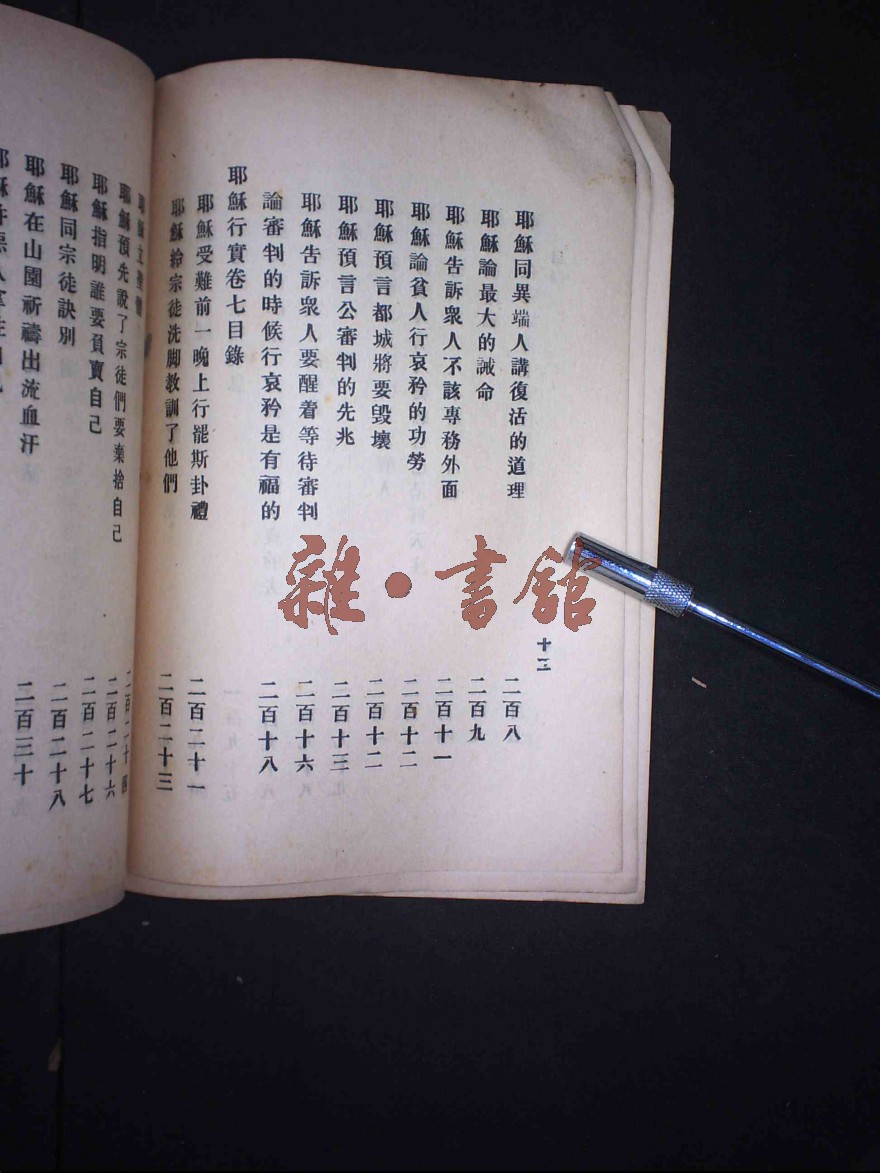 耶穌同異端人講復活的道理 二百八
耶穌論最大的誡命 二百九
耶穌告訴衆人不該專務外面 二百十一
耶穌論貧人行哀矜的功勞 二百十二
耶穌預言都城將要毀壞 二百十二
耶穌預言公審判的先兆 二百十三
耶穌告訴衆人要醒着等待審判 二百十六
論審判的時候行哀矜是有福的 二百十八
耶穌行實卷七目錄
耶穌受難前一晚上行罷斯卦禮 二百二十一
耶穌給宗徒洗脚教訓了他們 二百二十三
十三
耶穌立聖體 二百二十四
耶穌預先說了宗徒們要棄捨自己 二百二十六
耶穌指明誰要負賣自己 二百二十七
耶穌同宗徒訣別 二百二十八
耶穌在山園祈禱出流血汗 二百三十
雜·書館